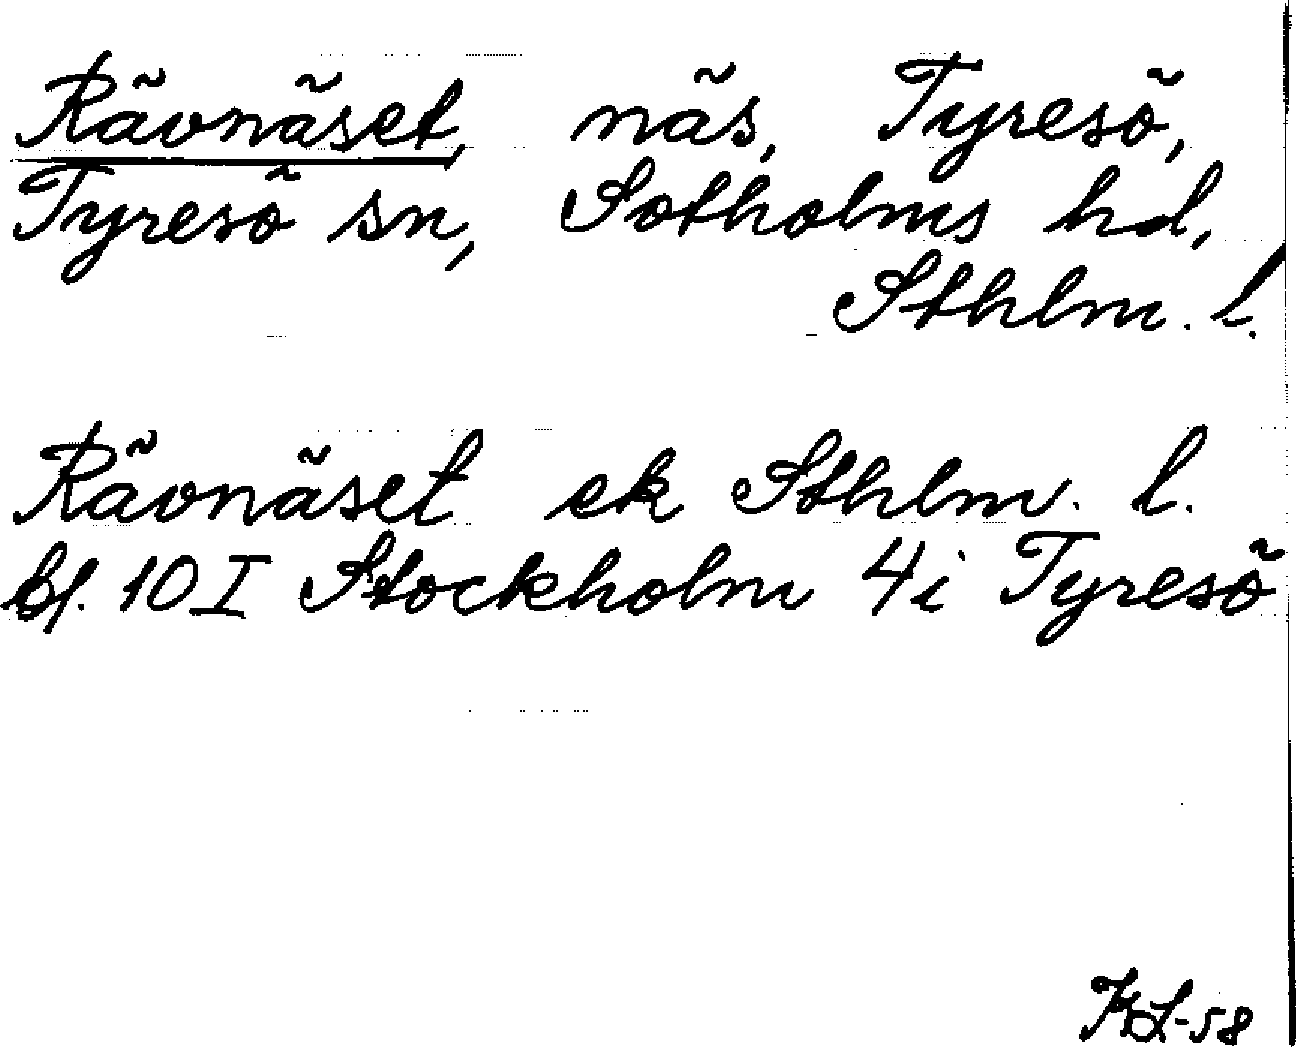 Rävnäset, näs, Tyresö,
Tyresö sn, Sotholms hd,
Sthlm. l.
Rävnäset ek Sthlm. l.
bl. 10 I Stockholm 4i Tyresö
KL-58